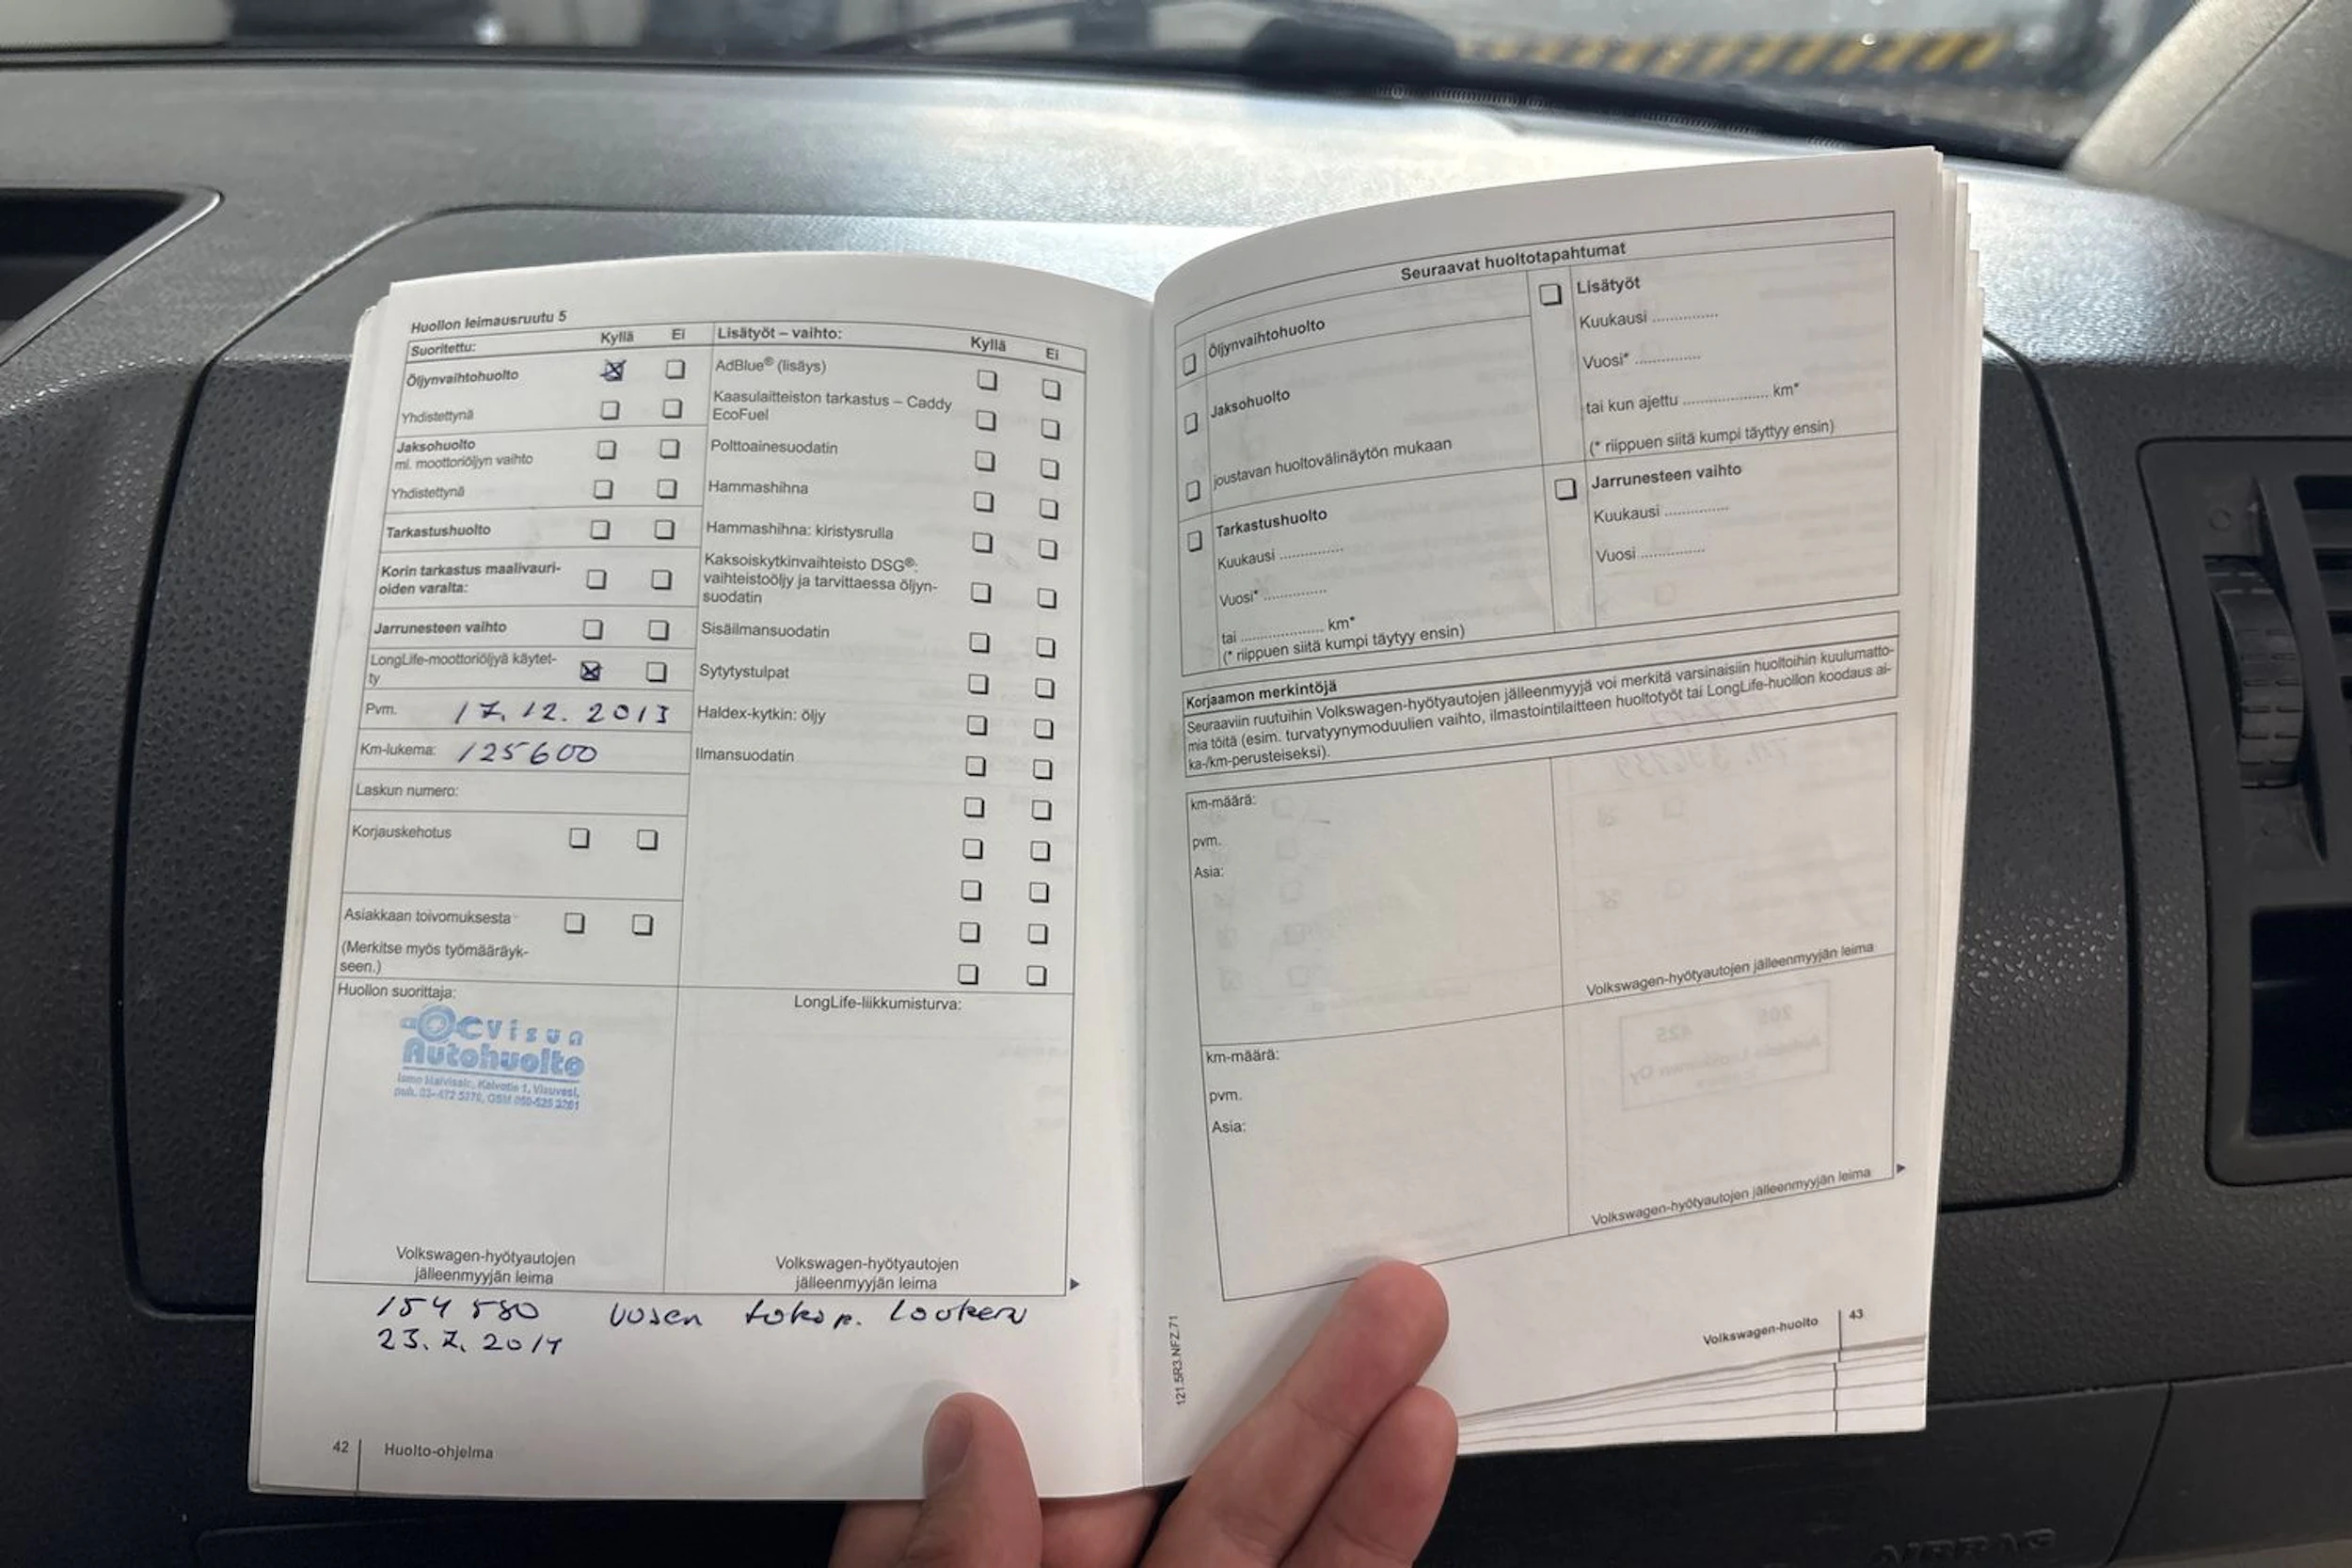 Huollon leimausruutu 5
Suoritettu: Kyllä Ei
Öljynvaihtohuolto
Yhdistettynä
Jaksohuolto
ml. moottoriöljyn vaihto
Yhdistettynä
Tarkastushuolto
Korin tarkastus maalivauri-
oiden varalta:
Jarrunesteen vaihto
LongLife-moottoriöljyä käytet-
ty
Pvm. 17.12.2013
Km-lukema: 125600
Laskun numero:
Korjauskehotus
Asiakkaan toivomuksesta
(Merkitse myös työmääräyk-
seen.)
Huollon suorittaja:
Visun
Autohuolto
Volkswagen-hyötyautojen
jälleenmyyjän leima
Lisätyöt – vaihto: Kyllä Ei
AdBlue® (lisäys)
Kaasulaitteiston tarkastus – Caddy
EcoFuel
Polttoainesuodatin
Hammashihna
Hammashihna: kiristysrulla
Kaksoiskytkinvaihteisto DSG®:
vaihteistoöljy ja tarvittaessa öljyn-
suodatin
Sisäilmansuodatin
Sytytystulpat
Haldex-kytkin: öljy
Ilmansuodatin
LongLife-liikkumisturva:
Volkswagen-hyötyautojen
jälleenmyyjän leima
154 580
23.7.2014
42 Huolto-ohjelma
Seuraavat huoltotapahtumat
Öljynvaihtohuolto
Jaksohuolto
joustavan huoltovälinäytön mukaan
Tarkastushuolto
Kuukausi ...............
Vuosi* ...............
tai .................... km*
(* riippuen siitä kumpi täytyy ensin)
Lisätyöt
Kuukausi ...............
Vuosi* ...............
tai kun ajettu .................... km*
(* riippuen siitä kumpi täyttyy ensin)
Jarrunesteen vaihto
Kuukausi ...............
Vuosi ...............
Korjaamon merkintöjä
Seuraaviin ruutuihin Volkswagen-hyötyautojen jälleenmyyjä voi merkitä varsinaisiin huoltoihin kuulumatto-
mia töitä (esim. turvatyynymoduulien vaihto, ilmastointilaitteen huoltotyöt tai LongLife-huollon koodaus ai-
ka-/km-perusteiseksi).
km-määrä:
pvm.
Asia:
Volkswagen-hyötyautojen jälleenmyyjän leima
km-määrä:
pvm.
Asia:
Volkswagen-hyötyautojen jälleenmyyjän leima
121.5R3.NFZ.71
Volkswagen-huolto 43
AIRBAG